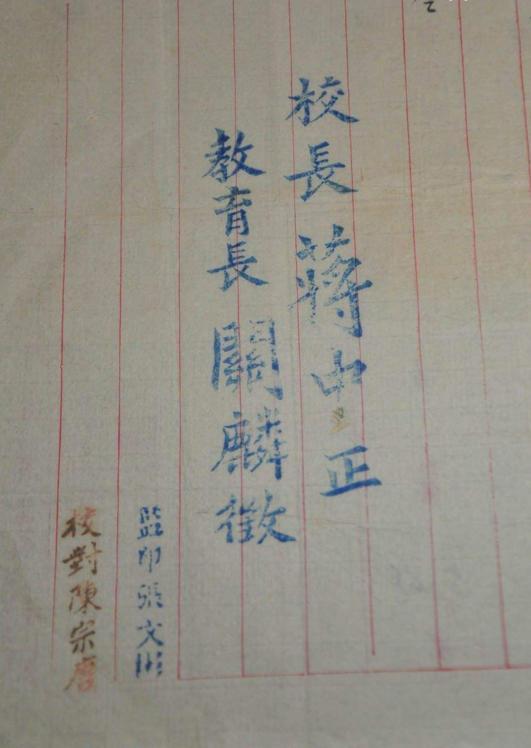 校長 蔣中正
教育長 關麟徵
監印張文彬
校對陳宗唐